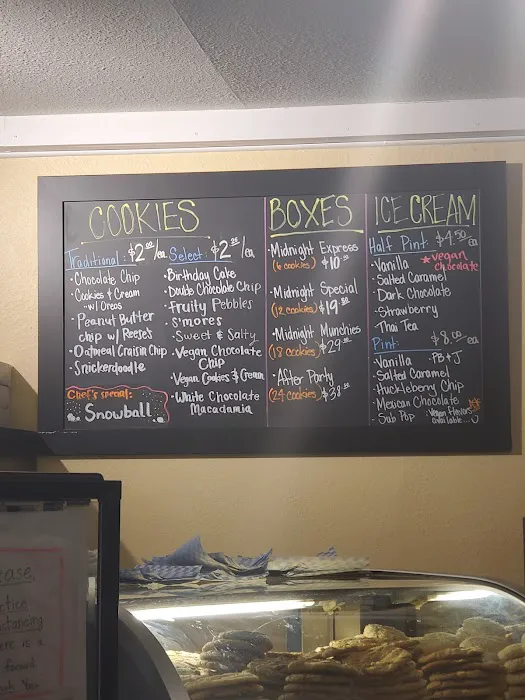 COOKIES
Traditional: $2.00/ea
• Chocolate Chip
• Cookies & Cream
- w/ Oreos
• Peanut Butter
chip w/ Reese's
• Oatmeal Craisin Chip
• Snickerdoodle
Chef's special:
Snowball
Select: $2
/ea
• Birthday Cake
• Double Chocolate Chip
• Fruity Pebbles
• S'mores
• Sweet & Salty
• Vegan Chocolate
Chip
• Vegan Cookies & Cream
• White Chocolate
Macadamia
BOXES
• Midnight Express
(6 cookies) $10
• Midnight Special
(12 cookies) $19
• Midnight Munchies
(18 cookies) $29
• After Party
(24 cookies) $38
ICE CREAM
Half Pint: $4.50 ea
• Vanilla
*vegan
chocolate
• Salted Caramel
• Dark Chocolate
• Strawberry
Thai Tea
Pint: $8.00 ea
• Vanilla • PB+J
• Salted Caramel
• Huckleberry Chip
• Mexican Chocolate
• Sub Pop
Vegan flavors
available...
ease,
ctice
istancing
ere is a